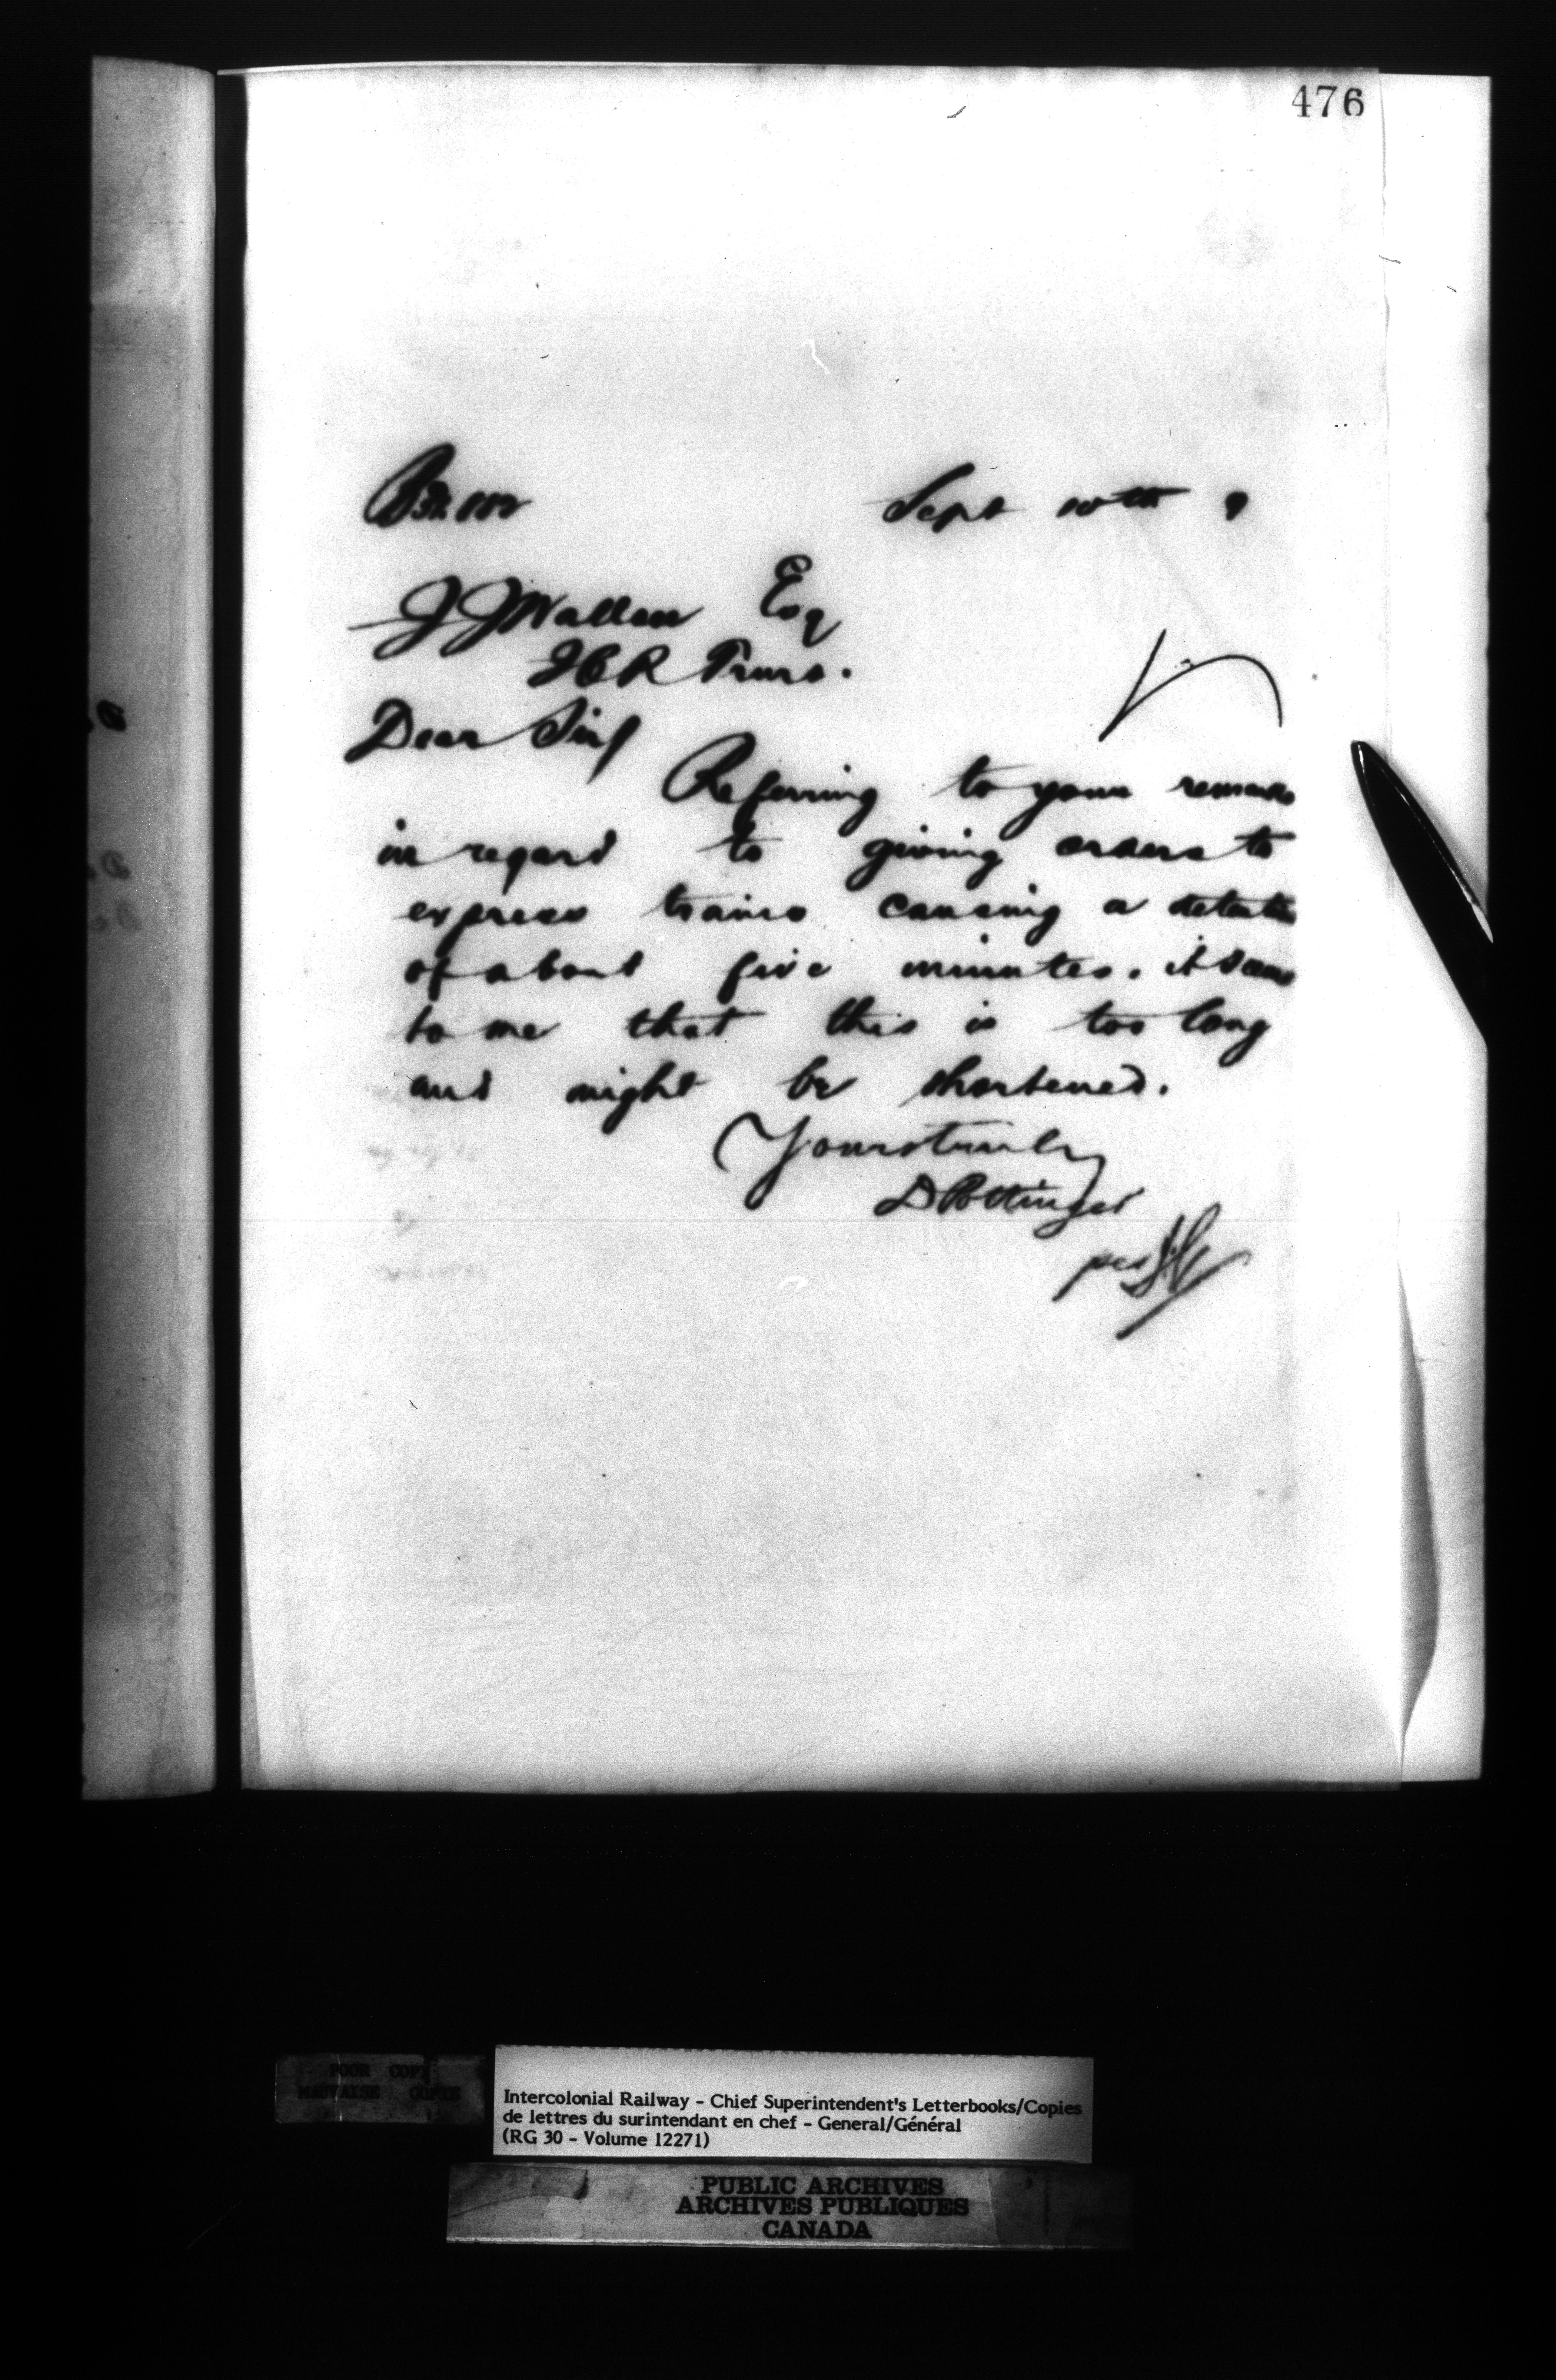 476
Sept 10th 9
J J Wallace Esq
ICR Truro.
Dear Sir/
Referring to your remarks
in regard to giving orders to
express trains causing a detention
of about five minutes. it seems
to me that this is too long
and might be shortened.
Yours truly
D Pottinger
per
POOR COPY
MAUVAISE COPIE
Intercolonial Railway - Chief Superintendent's Letterbooks/Copies
de lettres du surintendant en chef - General/Général
(RG 30 - Volume 12271)
PUBLIC ARCHIVES
ARCHIVES PUBLIQUES
CANADA